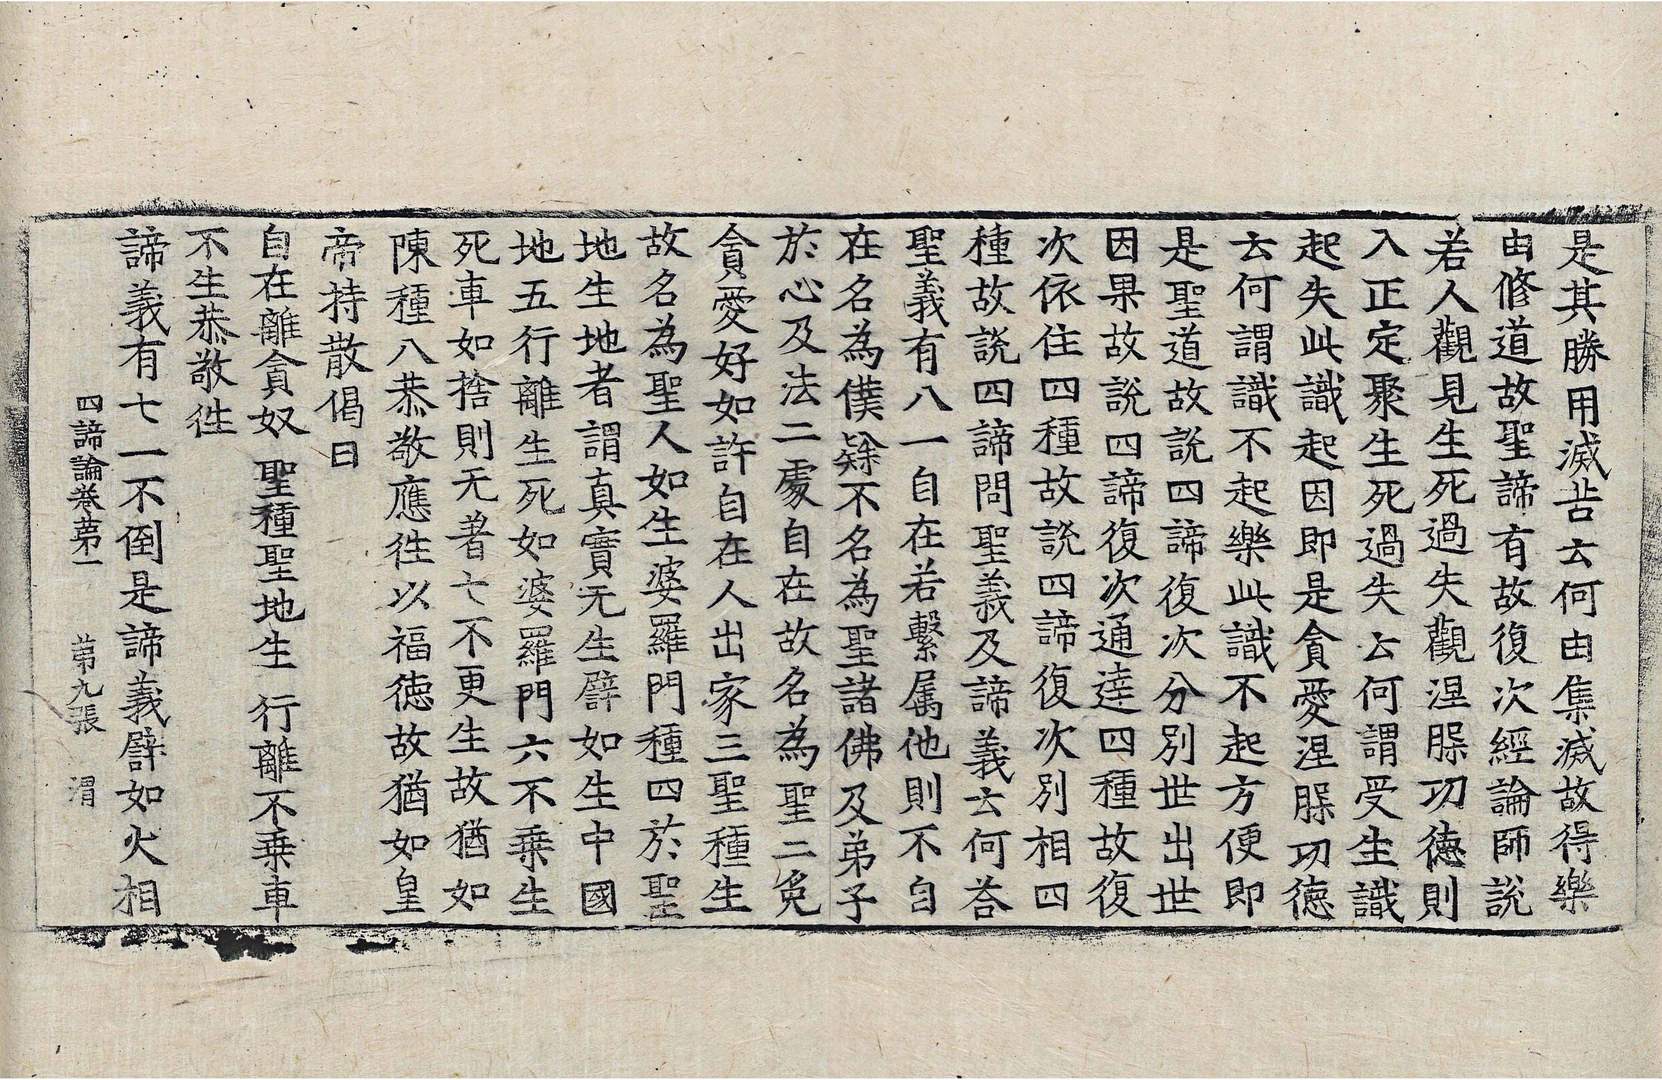 是其勝用滅苦云何由集滅故得樂
由修道故聖諦有故復次經論師說
若人觀見生死過失觀涅𣵀功德則
入正定聚生死過失云何謂受生識
起失此識起因即是貪愛涅𣵀功德
云何謂識不起樂此識不起方便即
是聖道故說四諦復次分別世出世
因果故說四諦復次通達四種故復
次依住四種故說四諦復次別相四
種故說四諦問聖義及諦義云何荅
聖義有八一自在若繫属他則不自
在名為僕隸不名為聖諸佛及弟子
於心及法二處自在故名為聖二免
貪愛好如許自在人出家三聖種生
故名為聖人如生婆羅門種四於聖
地生地者謂真實无生譬如生中國
地五行離生死如婆羅門六不乗生
死車如捨則无著七不更生故猶如
陳種八恭敬應徃以福德故猶如皇
帝持散偈曰
自在離貪奴 聖種聖地生 行離不乗車
不生恭敬徃
諦義有七一不倒是諦義譬如火相
四諦論卷苐一 苐九張 渭